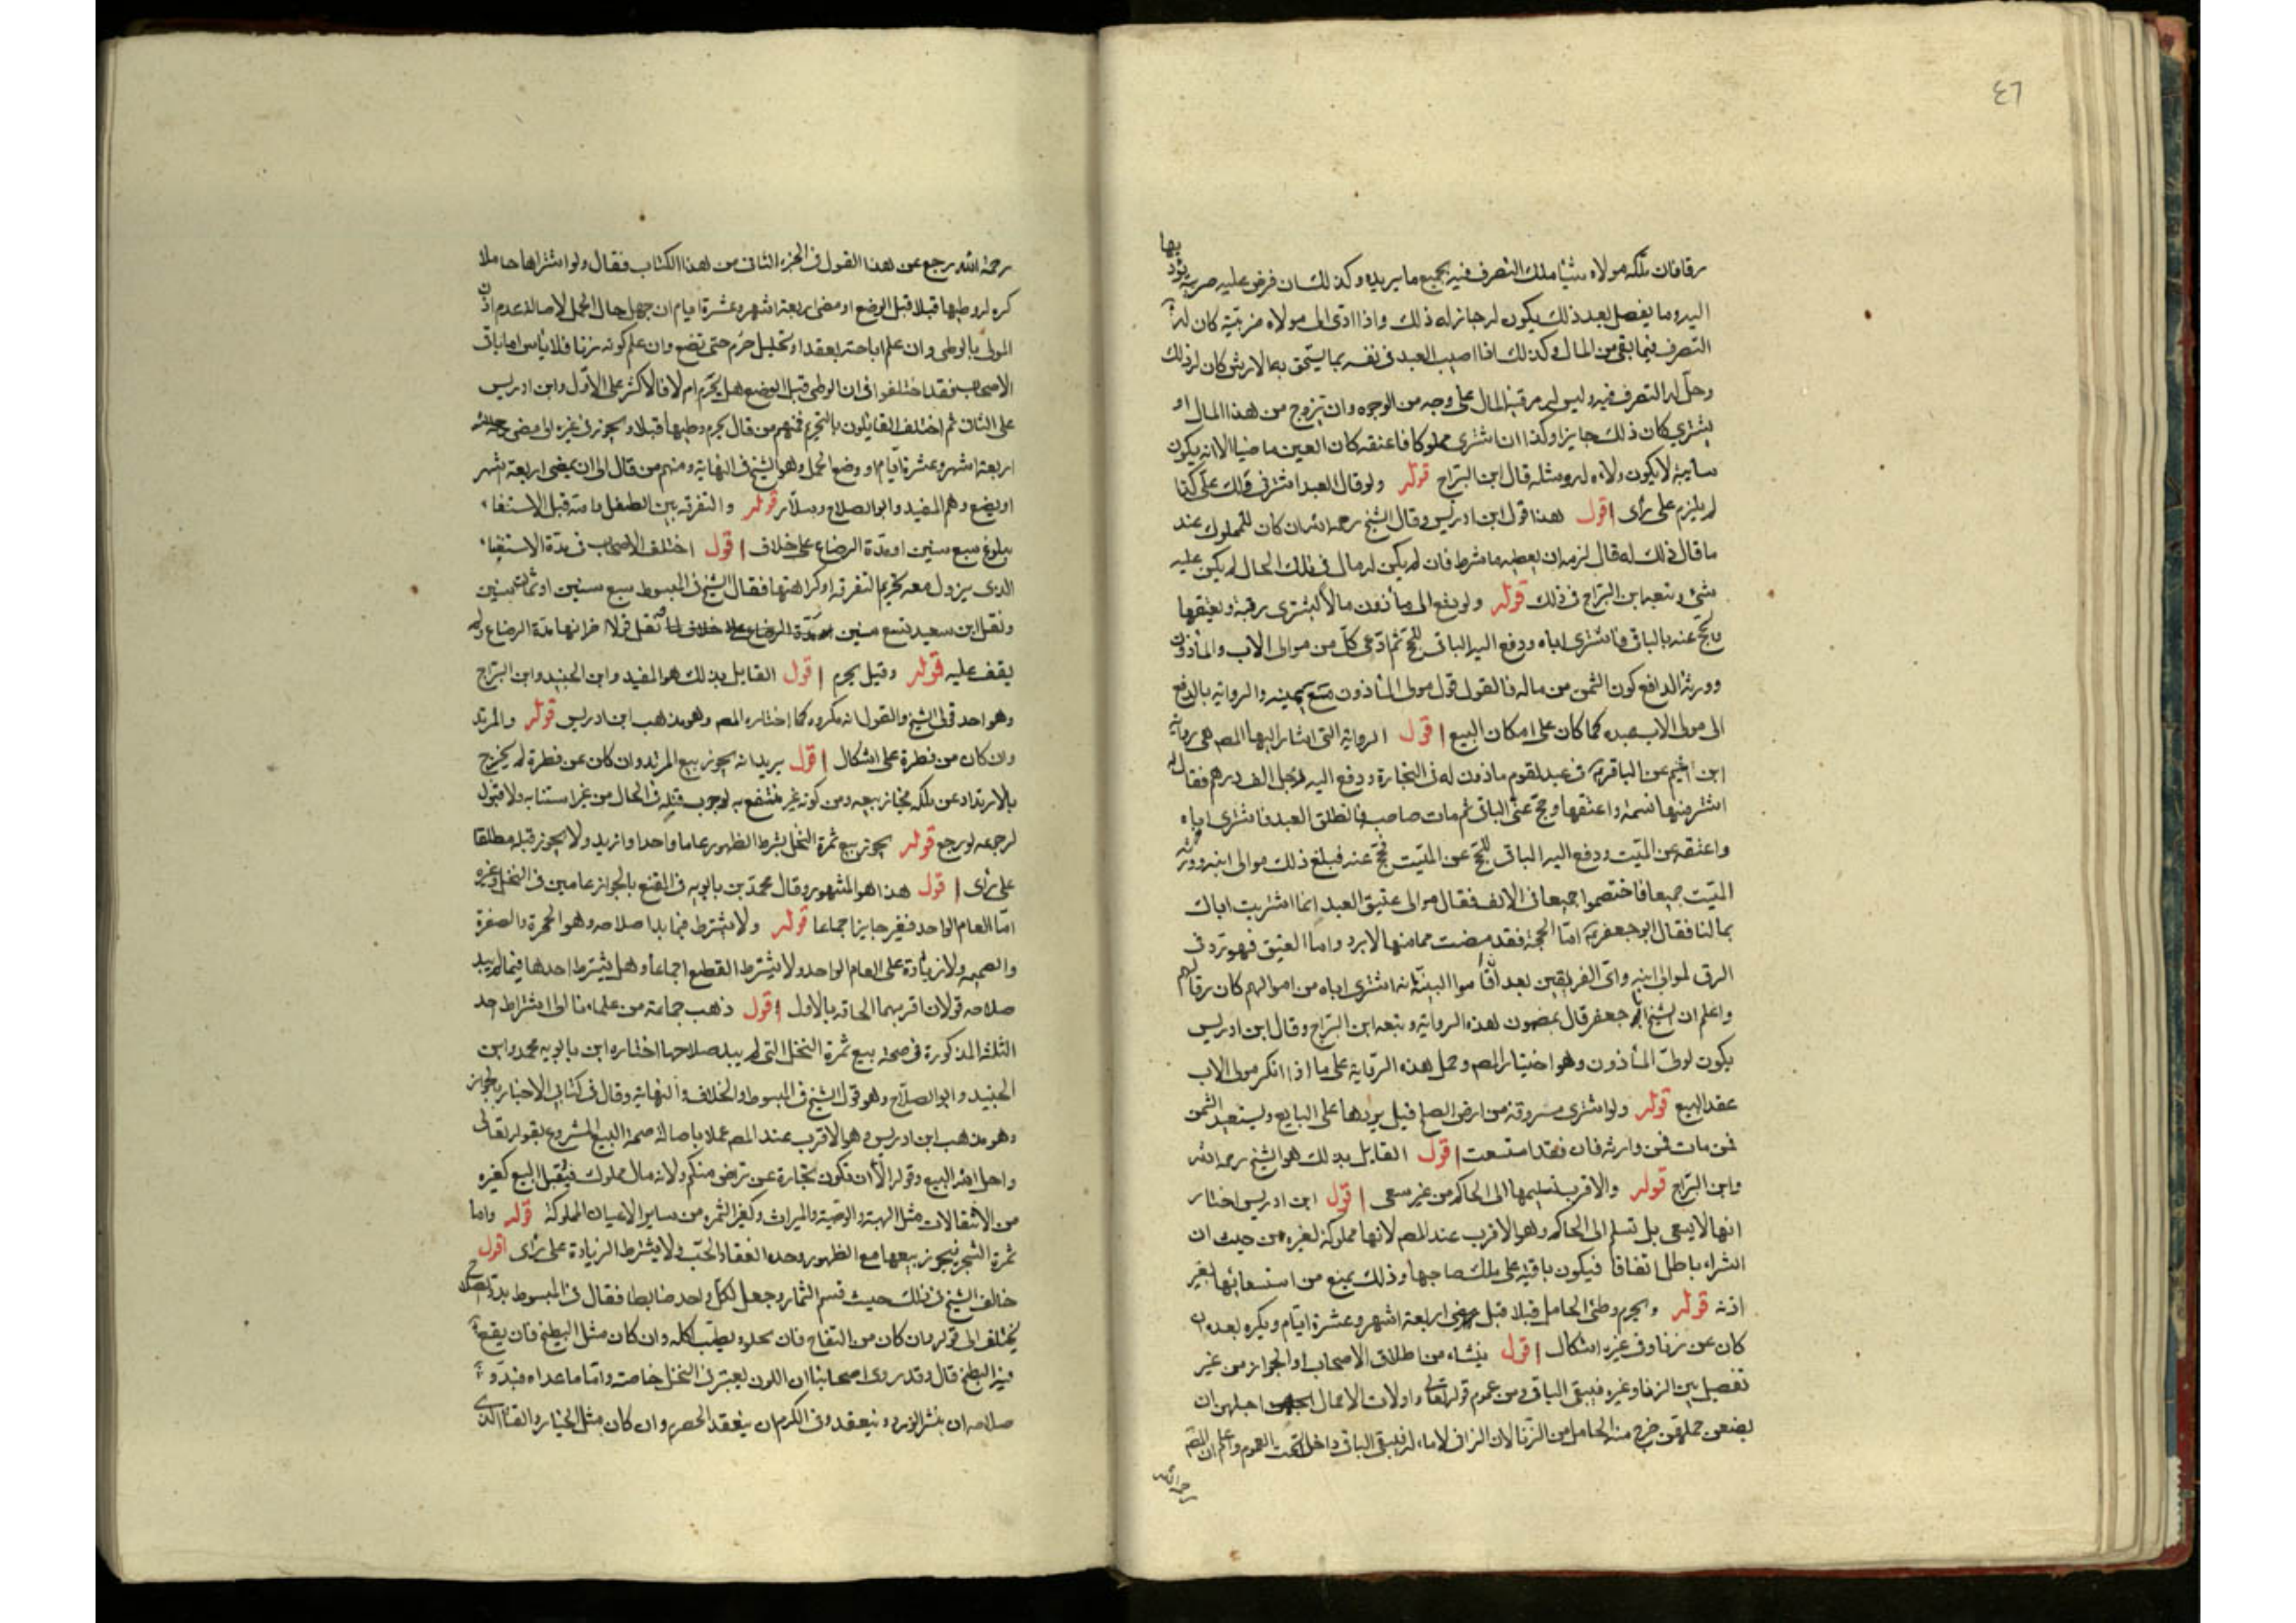 ٤٦
رقا فان ملكه مولاه شيئا ملك التصرف فيه بجميع ما يريده وكذلك ان فرض عليه ضريبة يؤديها
اليه وما يفضل بعد ذلك يكون له جاز له ذلك واذا ادى الى مولاه ضريبته كان له
التصرف فيما بقى من المال وكذلك اذا اصيب العبد فى نفسه بما يستحق به الارش كان له ذلك
وحل له التصرف فيه وليس له رقبة المال على وجه من الوجوه وان تزوج من هذا المال او
يشترى كان ذلك جايزا وكذا ان اشترى مملوكا فاعتقه كان العتق ماضيا الا انه يكون
سايبة لا يكون ولاءه له ومثله قال ابن البراج قوله ولو قال العبد اشترنى ولك على كذا
لم يلزم على رأى اقول هذا قول ابن ادريس وقال الشيخ رحمه الله ان كان للمملوك عند
ما قال ذلك له مال لزمه ان يعطيه ما شرط فان لم يكن له مال فى تلك الحال لم يكن عليه
شىء وتبعه ابن البراج فى ذلك قوله ولو دفع الى مأذون مالا ليشترى رقبة ويعتقها
ويحج عنه بالباقى فاشترى اباه ودفع اليه الباقى للحج ثم ادعى كل من موالى الاب والمأذون
وورثة الدافع كون الثمن من ماله فالقول قول مولى المأذون مع يمينه والرواية بالدفع
الى مولى الاب عبده كما كان على امكان البيع اقول الرواية التى اشار اليها المصـ هى رواية
ابن اشيم عن الباقر فى عبد لقوم ماذون له فى التجارة ودفع اليه رجل الف درهم فقال له
اشتر منها نسمة واعتقها وحج عنى الباقى ثم مات صاحب فانطلق العبد فاشترى اباه
واعتقه عن الميت ودفع اليه الباقى للحج عن الميت فحج عنه فبلغ ذلك موالى ابنه وورثة
الميت جميعا فاختصموا جميعا فى الالف فقال موالى عتيق العبد انما اشتريت اباك
بمالنا فقال ابو جعفر اما الحجة فقد مضت مما منها لا يرد واما العتيق فهو ترد فى
الرق لموالى ابنه واى الفريقين بعد اقاموا البينة انه اشترى اباه من اموالهم كان رقا لهم
واعلم ان الشيخ ابا جعفر قال بمضمون هذه الرواية وتبعه ابن البراج وقال ابن ادريس
يكون لولى المأذون وهو اختيار المصـ وحمل هذه الرواية على ما اذا انكر مولى الاب
عقد البيع قوله ولو اشترى مسروقة من ارض الصلح قيل يردها على البايع ويستعيد الثمن
فمن مات فمن وارثه فان فقد استسعت اقول القايل بذلك هو الشيخ رحمه الله
وابن البراج قوله والاقرب تسليمها الى الحاكم من غير سعى اقول ابن ادريس اختار
انها لا يسعى بل تسلم الى الحاكم وهو الاقرب عند المصـ لانها مملوكة لغيره من حيث ان
الشراء باطل اتفاقا فيكون باقية على ملك صاحبها وذلك يمنع من استسعائها بغير
اذنه قوله ويحرم وطئ الحامل قبلا قبل مضى اربعة اشهر وعشرة ايام ويكره بعده ان
كان عن زنا وفى غيره اشكال اقول ينشاء من اطلاق الاصحاب او الجواز من غير
تفصيل بين الزنا وغيره فيبقى الباقى ومن عموم قوله تعالى واولات الاحمال اجلهن ان
يضعن حملهن خرج منه الحامل من الزنا لان الزانى لا ماء له فيبقى الباقى داخلا تحت العموم واعلم ان المصـ
رحمه الله
رحمه الله رجع عن هذا القول فى الجزء الثانى من هذا الكتاب فقال ولو اشتراها حاملا
كره له وطيها قبلا قبل الوضع او مضى اربعة اشهر وعشرة ايام ان جهل حال الحمل لاصالة عدم اذن
المولى بالوطى وان علم اباحته بعقد او تحليل حرم حتى تضع وان علم كونه زنا فلا بأس اما باقى
الاصحاب فقد اختلفوا فى ان الوطى قبل الوضع هل يحرم ام لا فالاكثر على الاول وابن ادريس
على الثانى ثم اختلف القايلون بالتحريم فمنهم من قال يحرم وطيها قبلا ويجوز فى غيره الى مضى
اربعة اشهر وعشرة ايام او وضع الحمل وهو الشيخ فى النهاية ومنهم من قال الى ان يمضى اربعة اشهر
او يضع وهم المفيد وابو الصلاح وسلار قوله والتفرقة بين الطفل وامه قبل الاستغناء
ببلوغ سبع سنين او مدة الرضاع على خلاف اقول اختلف الاصحاب فى مدة الاستغناء
الذى يزول معه تحريم التفرقة او كراهتها فقال الشيخ فى المبسوط سبع سنين او ثمان سنين
ونقل ابن سعيد تسع سنين مدة الرضاع على خلاف نقل قولا اخر انها مدة الرضاع ولم
يقف عليه قوله وقيل يحرم اقول القايل بذلك هو المفيد وابن الجنيد وابن البراج
وهو احد قولى الشيخ والقول انه مكروه كما اختاره المصـ وهو مذهب ابن ادريس قوله والمرتد
وان كان من فطرة على اشكال اقول يريد انه يجوز بيع المرتد وان كان عن فطرة لم يخرج
بالارتداد عن ملكه فجاز بيعه ومن كونه غير منتفع به لوجوب قتله فى الحال من غير استتابه ولا قبول
لرجوعه لو رجع قوله يجوز بيع ثمرة النخل بشرط الظهور عاما واحدا وازيد ولا يجوز قبله مطلقا
على رأى اقول هذا هو المشهور وقال محمد بن بابويه فى المقنع بالجواز عامين فى النخل وغيره
اما العام الواحد فغير جايز اجماعا قوله ولا يشترط فيما بدا صلاحه وهو الحمرة والصفرة
والضميمة ولا زيادة على العام الواحد ولا يشترط القطع اجماعا وهل يشترط احدها فيما لم يبد
صلاحه قولان اقربهما الحاقه بالاول اقول ذهب جماعة من علمائنا الى اشتراط احد
الثلثة المذكورة فى صحة بيع ثمرة النخل التى لم يبد صلاحها اختاره ابن بابويه محمد وابن
الجنيد وابو الصلاح وهو قول الشيخ فى المبسوط والخلاف والنهاية وقال فى كتابى الاخبار بالجواز
وهو مذهب ابن ادريس وهو الاقرب عند المصـ عملا باصالة صحة البيع المشروع بقوله تعالى
واحل الله البيع وقوله الا ان تكون تجارة عن تراض منكم ولانه مال مملوك فيقبل البيع كغيره
من الانتقالات مثل الهبة والوصية والميراث وكغير الثمرة من ساير الاعيان المملوكة قوله واما
ثمرة الشجر فيجوز بيعها مع الظهور وحده انعقاد الحب ولا يشترط الزيادة على رأى اقول
خالف الشيخ فى ذلك حيث قسم الثمار وجعل لكل واحد ضابطا فقال فى المبسوط بدو الصلاح
يختلف الى قوله وان كان من التفاح فان يحلو ويطيب اكله وان كان مثل البطيخ فان يقع
فيه البطيخ قال وقد روى اصحابنا ان اللون يعتبر فى النخل خاصة واما ما عداه فبدو
صلاحه ان ينثر الورد وينعقد وفى الكرم ان ينعقد الحصرم وان كان مثل الخيار والقثا الذى